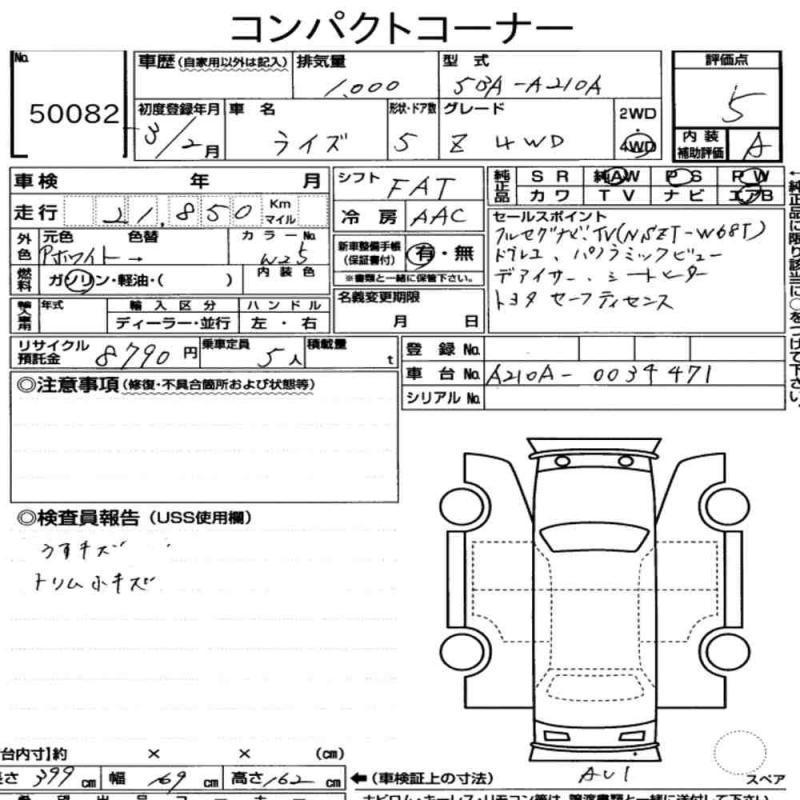 コンパクトコーナー
No. 50082
車歴 (自家用以外は記入) 排気量 1,000 型式 5BA-A210A 評価点 5
初度登録年月 3/2月 車名 ライズ 形状・ドア数 5 グレード Z 4WD 2WD 4WD 内装補助評価 A
車検 年 月 シフト FAT 純正品 SR 純AW PS PW
カワ TV ナビ エアB
走行 21,850 Km マイル 冷房 AAC
外色 元色 Pホワイト→ 色替 カラーNo. W25 新車整備手帳(保証書付) 有・無
※書類と一緒に保管下さい。
セールスポイント
フルセグナビ:TV(NSZT-W68T)
ドラレコ、パノラミックビュー
デアイサー、シートヒーター
トヨタ セーフティセンス
燃料 ガソリン・軽油・( ) 内装色
名義変更期限 月 日
輸入車用 年式 輸入区分 ディーラー・並行 ハンドル 左・右
リサイクル預託金 8790円 乗車定員 5人 積載量 t
登録No.
車台No. A210A-0034471
シリアルNo.
◎注意事項(修復・不具合箇所および状態等)
◎検査員報告(USS使用欄)
うすキズ
トリム小キズ
台内寸】約 × × (cm)
長さ 399cm 幅 169cm 高さ 162cm ←(車検証上の寸法) AU1 スペア